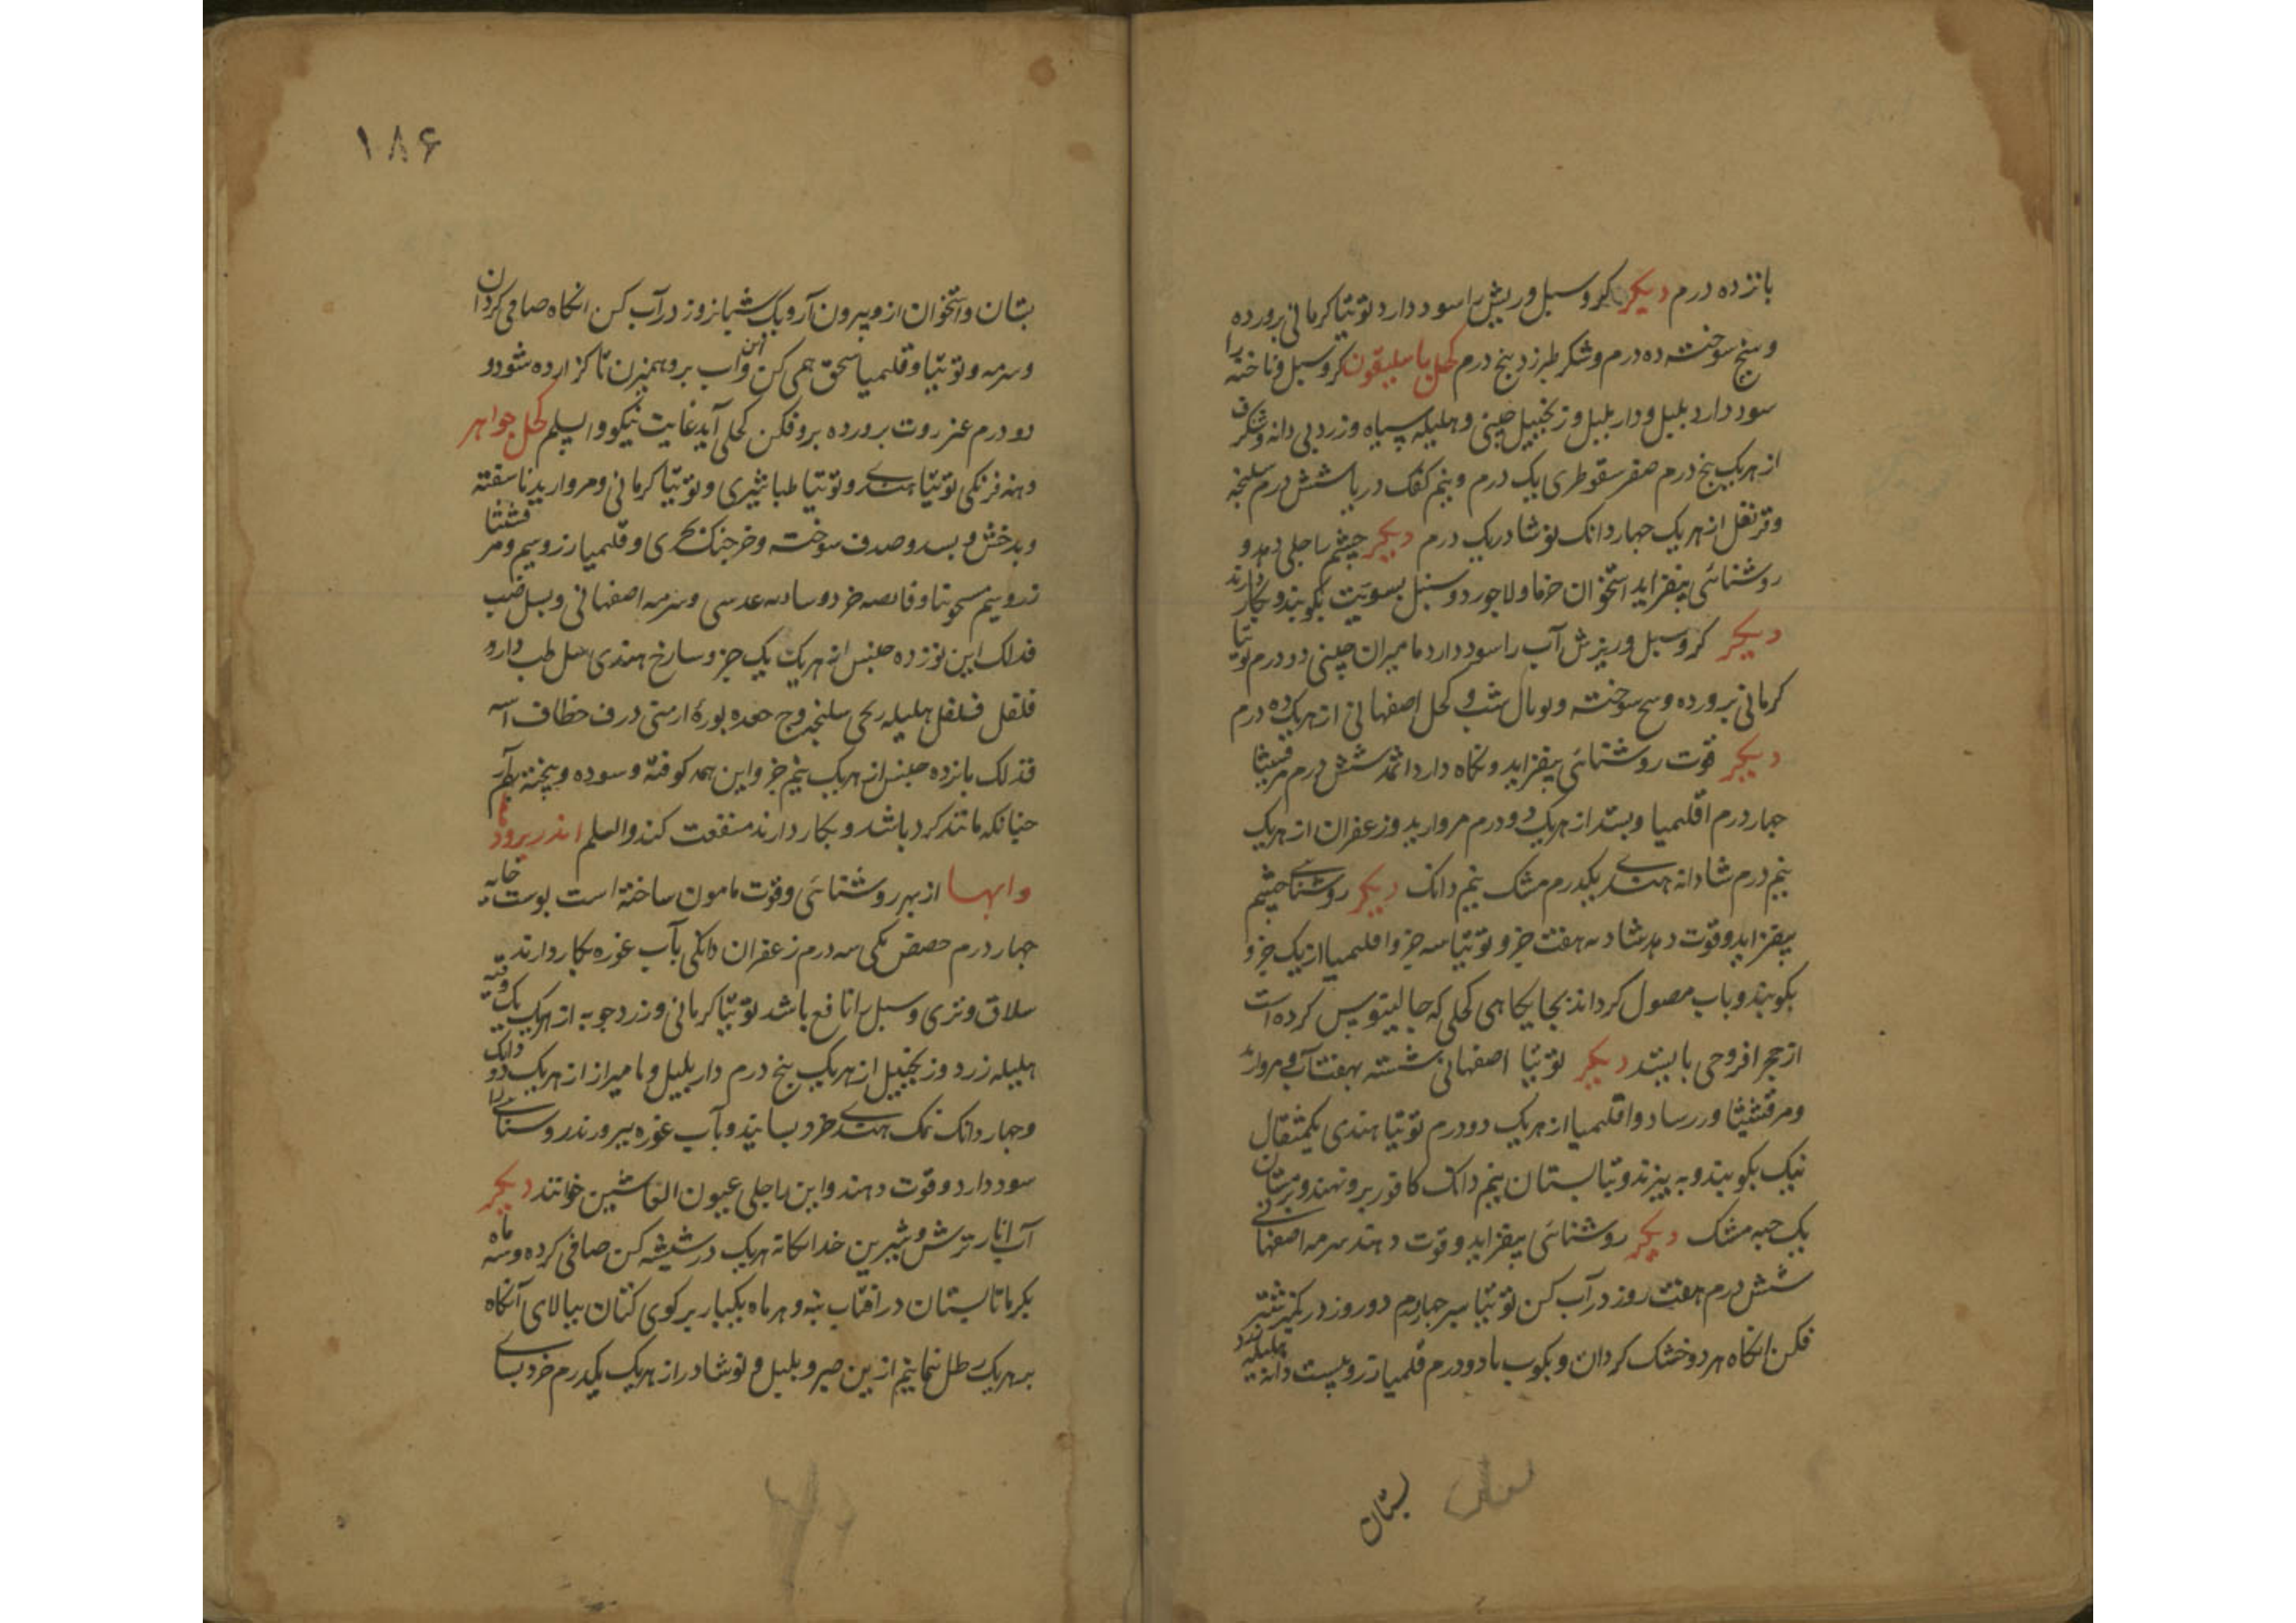 بانزده درم دیکر کر و سبل و ریش را سود دارد توتیا کرمانی برورده
و سنج سوخته ده درم و شکر طبرزد بنج درم کحل باسلیقون کر و سبل و ناخنه را
سود دارد بلبل و دار بلبل و زنجبیل جینی و هلیله سیاه و زرد بی دانه و شکرف
از هر یک بنج درم صفر سقوطری یک درم و نیم کفک دریا شش درم سلنجه
و قرنفل از هر یک جهار دانک نوشادر یک درم دیکر جشم را جلی دهد و
روشنائی بیفزاید استخوان خرما و لاجورد و سنبل بسویت بکوبند و بکار دارند
دیکر کر و سبل و ریزش آب را سود دارد مامیران چینی دو درم توتیا
کرمانی برورده و سوخته و توبال شب و کحل اصفهانی از هر یک ده درم
دیکر قوت روشنائی بیفزاید و نکاه دارد اثمد شش درم مرقشیثا
جهار درم اقلیمیا و بسد از هر یک دو درم مروارید و زعفران از هر یک
نیم درم شادانه هندی یکدرم مشک نیم دانک دیکر روشنائی جشم
بیفزاید و قوت دهد شادنه هفت جزو توتیا سه جزو اقلیمیا از یک جزو
بکوبند و باب مصول کردانند بجایکاهی کحلی که جالینوس کرده است
از حجر افروجی بابسد دیکر توتیا اصفهانی شسته بهفت آب و مروارید
و مرقشیثا و رساد و اقلیمیا از هر یک دو درم توتیا هندی یکمثقال
نیک بکوبند و به بیزند و بتابستان نیم دانک کافور برو نهند و بزمستان
یک حبه مشک دیکر روشنائی بیفزاید و قوت دهد سرمه اصفهانی
شش درم هفت روز در آب کن توتیا سبز جهار درم دو روز در
فکن انکاه هر دو خشک کردان و بکوب با دو درم قلمیا زر و بیست دانه هلیله زرد
بستان
۱۸۶
بستان و استخوان ازو بیرون آر و یک شبانروز در آب کن انکاه صافی کردان
و سرمه و توتیا و قلیمیا سحق همی کن و این آب برو همیزن تا کزارده شود و
دو درم عنزروت برورده برو فکن کحلی آید غایت نیکو و السلم کحل جواهر
دهنه فرنکی توتیا هندی و توتیا طباشیری و توتیا کرمانی و مروارید ناسفته
و بدخش و بسد و صدف سوخته و خرجنک بحری و قلیمیا زر و سیم و مرقشیثا
زر و سیم و سادنه عدسی و سرمه اصفهانی و
فذلک این نوزده جنس از هر یک یک جزو هندی
فلفل هلیله سلنجه وج بوره ارمنی خطاف
فذلک بانزده جنس از هر یک نیم جزو این همه کوفته و سوده و بیخته بهم آر
جنانکه مانند کرد باشد و بکار دارند منفعت کند و السلم اندر برودها
وابها از بهر روشنائی و قوت مامون ساخته است بوست خایه
جهار درم حضض مکی سه درم زعفران دانکی بآب غوره بکار دارند
سلاق و تری و سبل را نافع باشد توتیا کرمانی و زردجوبه از هر یک یک وقیه
هلیله زرد و زنجبیل از هر یک بنج درم دار بلبل و مامیران از هر یک دو دانک
و جهار دانک نمک هندی خرد بسایند و بآب غوره ببرورند روسنائی را
سود دارد و قوت دهند و این را جلی عیون النقاشین خوانند دیکر
آب انار ترش و شیرین جداکانه هر یک در شیشه کن صافی کرده و سه ماه
بکرما تابستان در افتاب بنه و هر ماه یکبار بر کوی کتان ببالای آنکاه
بر هر یک رطل نمانیم ازین صبر و بلبل و نوشادر از هر یک یکدرم خرد بسای